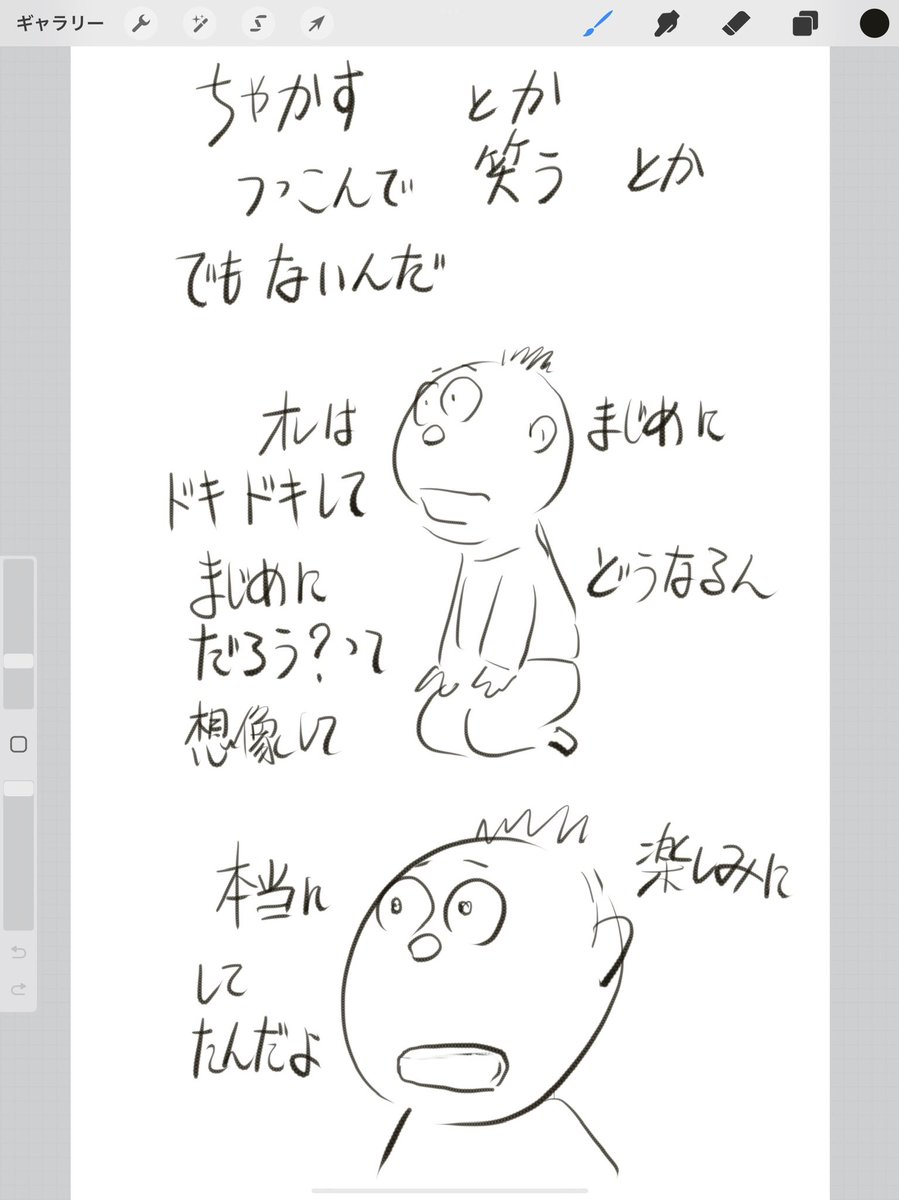 ギャラリー
ちゃかす とか
つっこんで 笑う とか
でもないんだ
オレは まじめに
ドキドキして
まじめに どうなるん
だろう?って
想像して
本当に 楽しみに
して
たんだよ